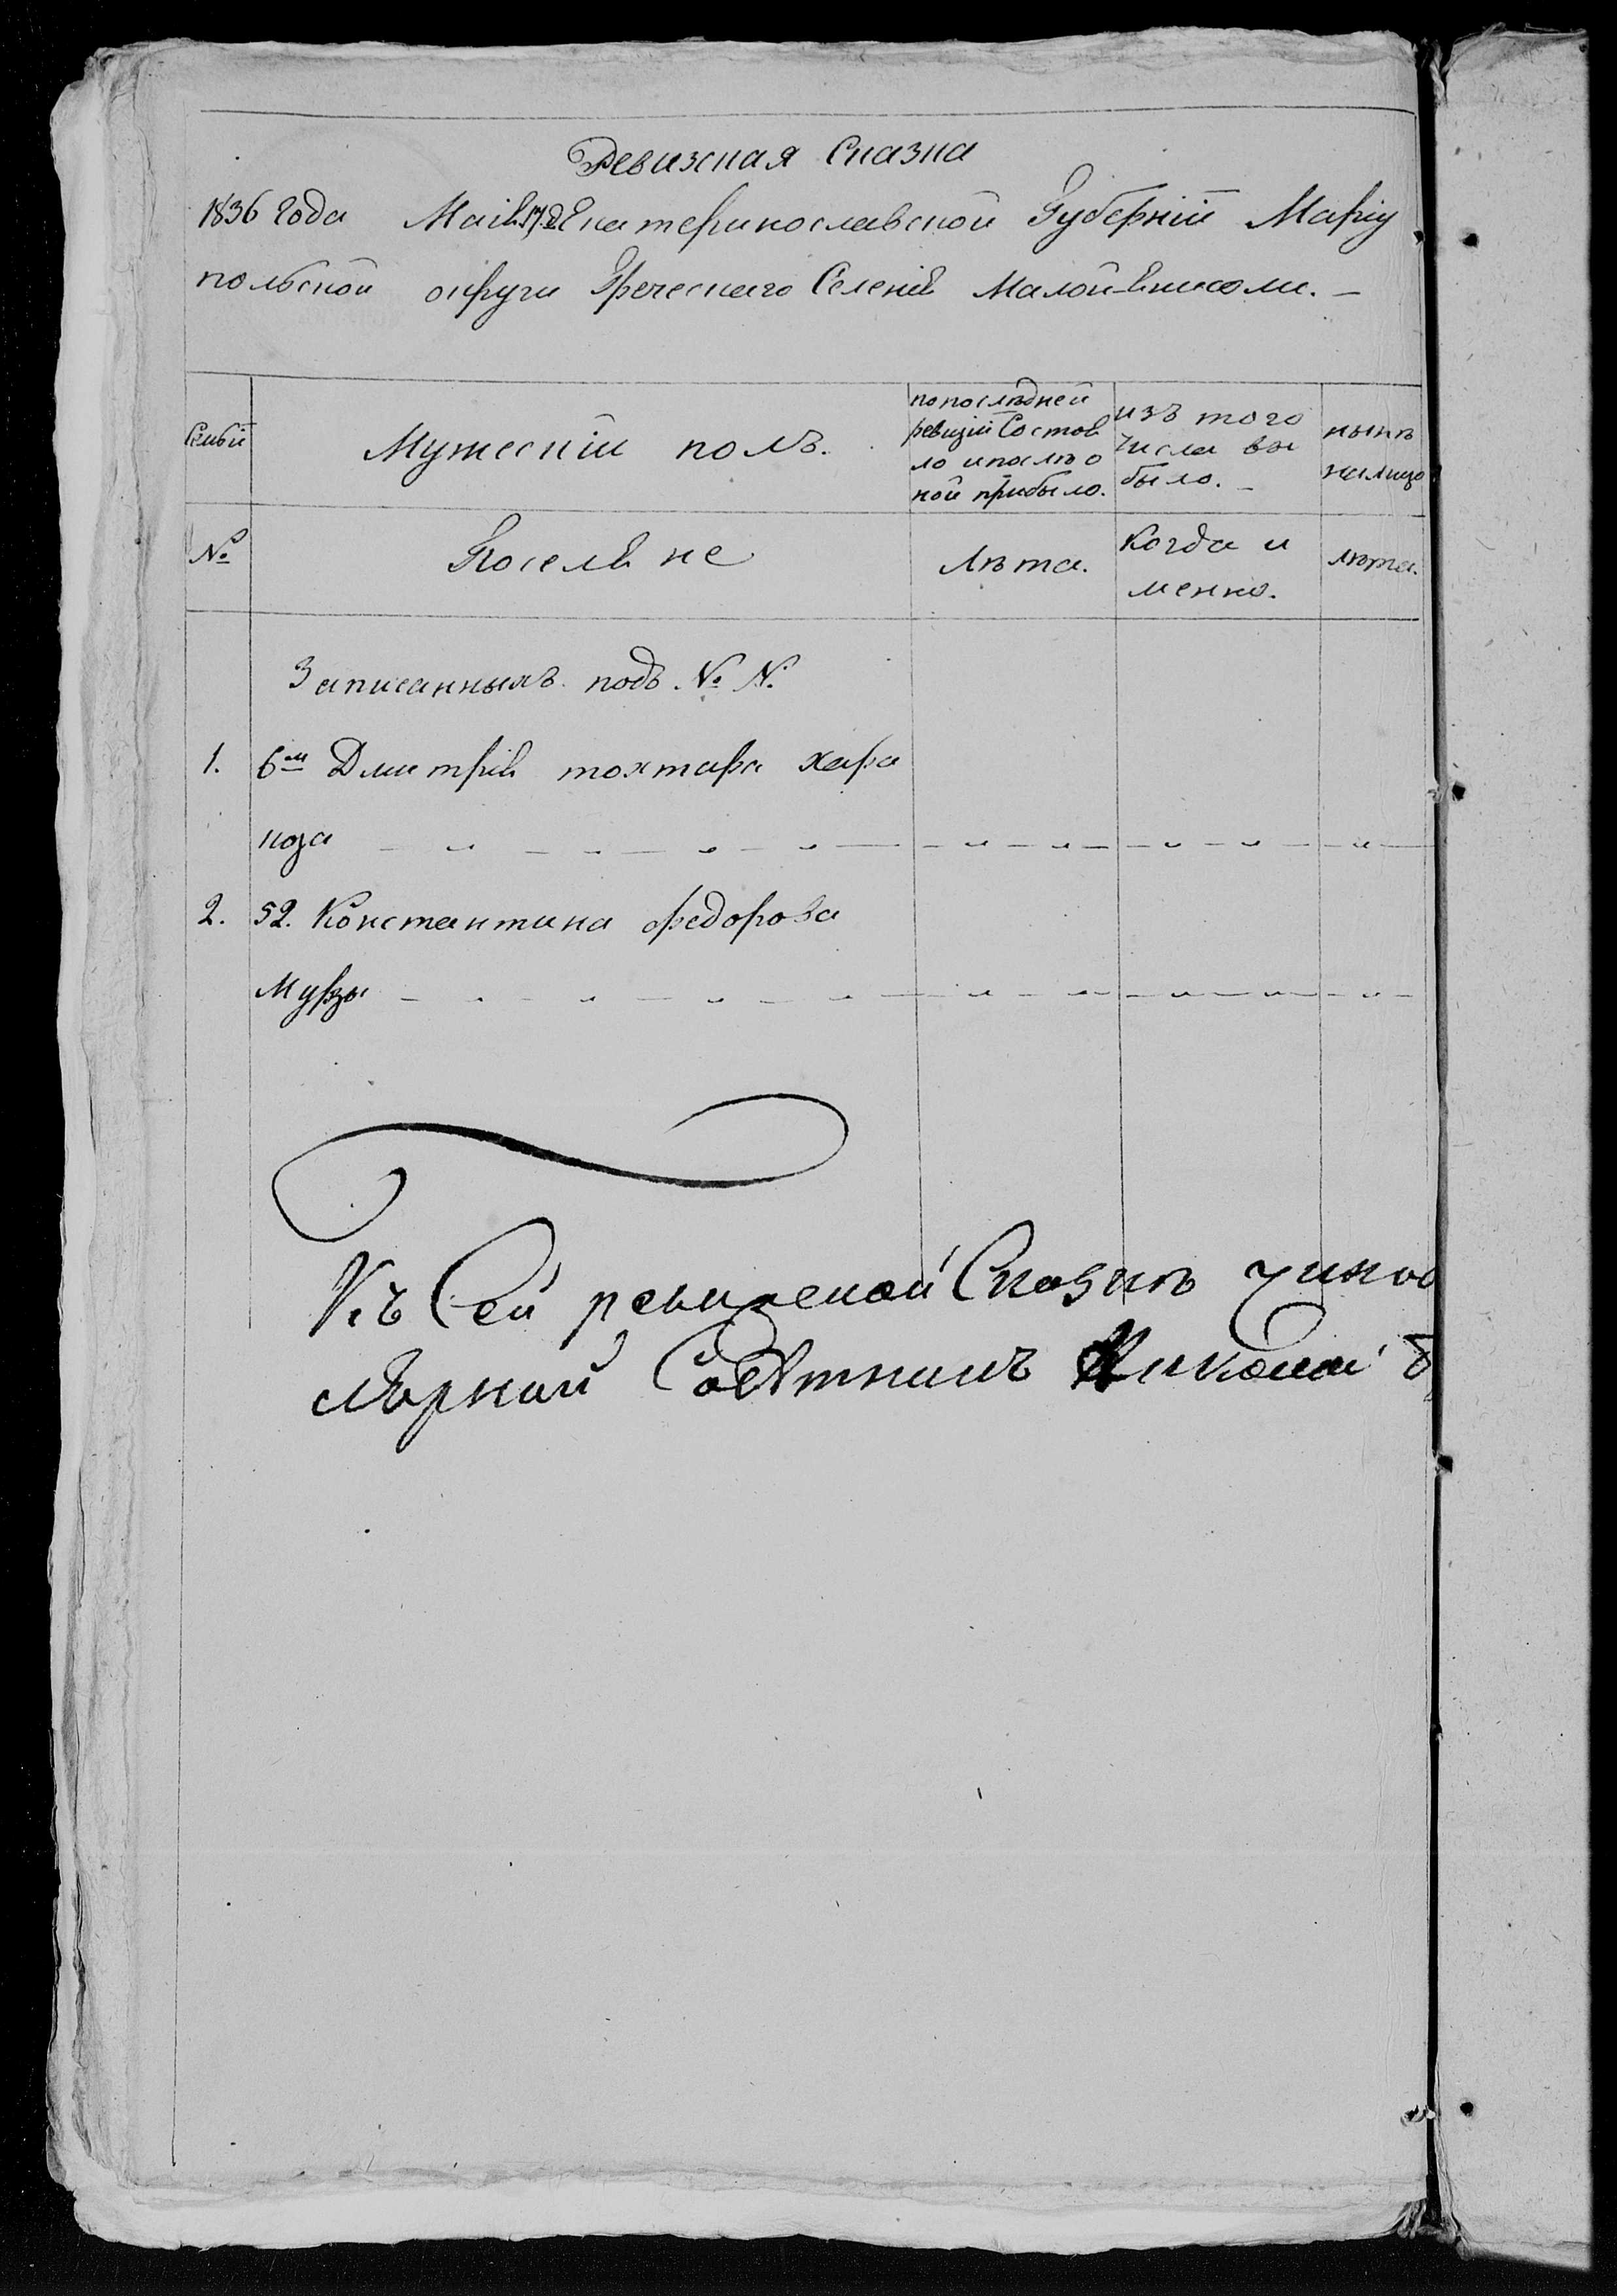 Ревизская Сказка
1836 Года Маія 17 д Екатеринославской Губерніи Маріу
польской округи Греческаго Селенія Малой-Енисоли. —
Семьи
Мужескій полъ.
по послѣдней
ревизіи Состоя
ло и послѣ о
ной прибыло.
изъ того
числа вы
было. —
нынѣ
на лицо
№
Поселяне
Лѣта.
Когда и
менно.
лѣта.
Записанныхъ подъ № №
1. 6м Дмитрія тохтара хара
коза
2. 52. Константина федорова
Мурзы
Къ Сей ревизской Сказкѣ чинов
Совѣтникъ Николай